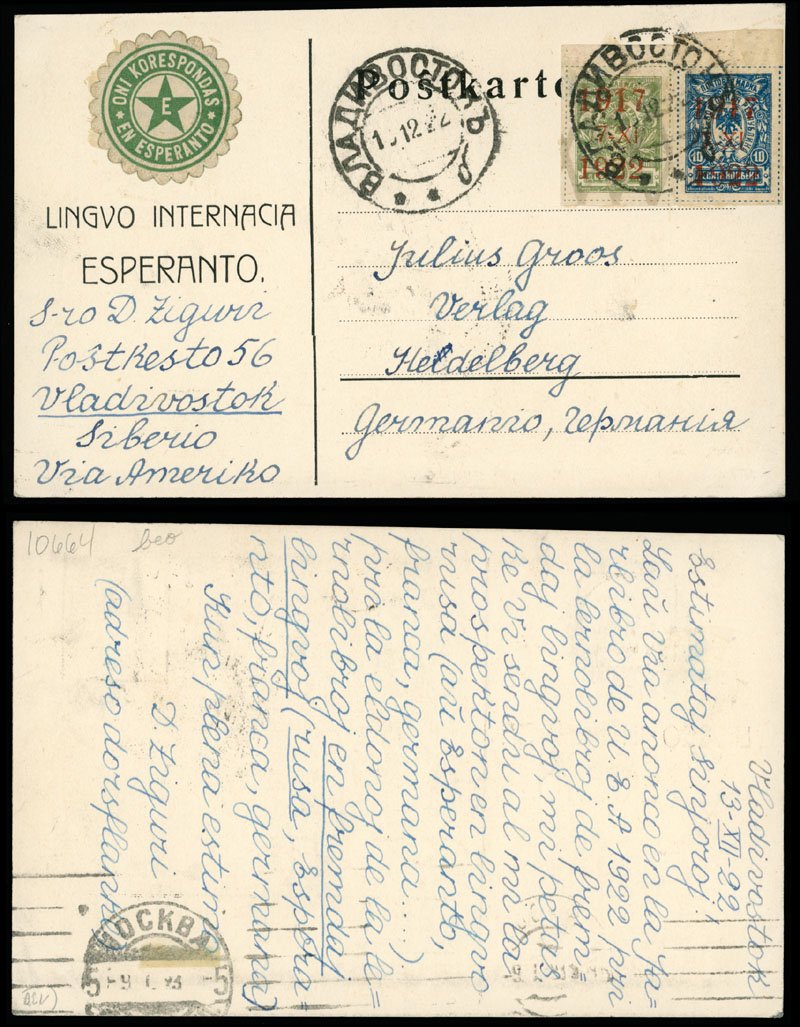 ONI KORESPONDAS
EN ESPERANTO
E
LINGVO INTERNACIA
ESPERANTO.
S-ro D. Ziguri
Poŝtkesto 56
Vladivostok
Siberio
Via Ameriko
Poŝtkarto
ВЛАДИВОСТОКЪ
12 22
ВЛАДИВОСТОКЪ
1917
7 XI
1922
1917
7 XI
1922
10 10
Julius Groos
Verlag
Heidelberg
Germanio, Германія
10664 beo
Vladivostok
13-XII-22
Estimataj Sinjoroj!
Laŭ Via anonco en la Ja=
rlibro de U.E.A 1922 pri
la lernolibroj de frem=
daj lingvoj, mi petas
ke Vi sendu al mi la
prospekton en lingvo
rusa (aŭ Esperanto,
franca, germana....)
pri la eldonoj de la le=
rnolibroj en fremdaj
lingvoj (rusa, Espera=
nto, franca, germana)
Kun plena estimo
D. Ziguri
(adreso dorsflanke
МОСКВА
5 5